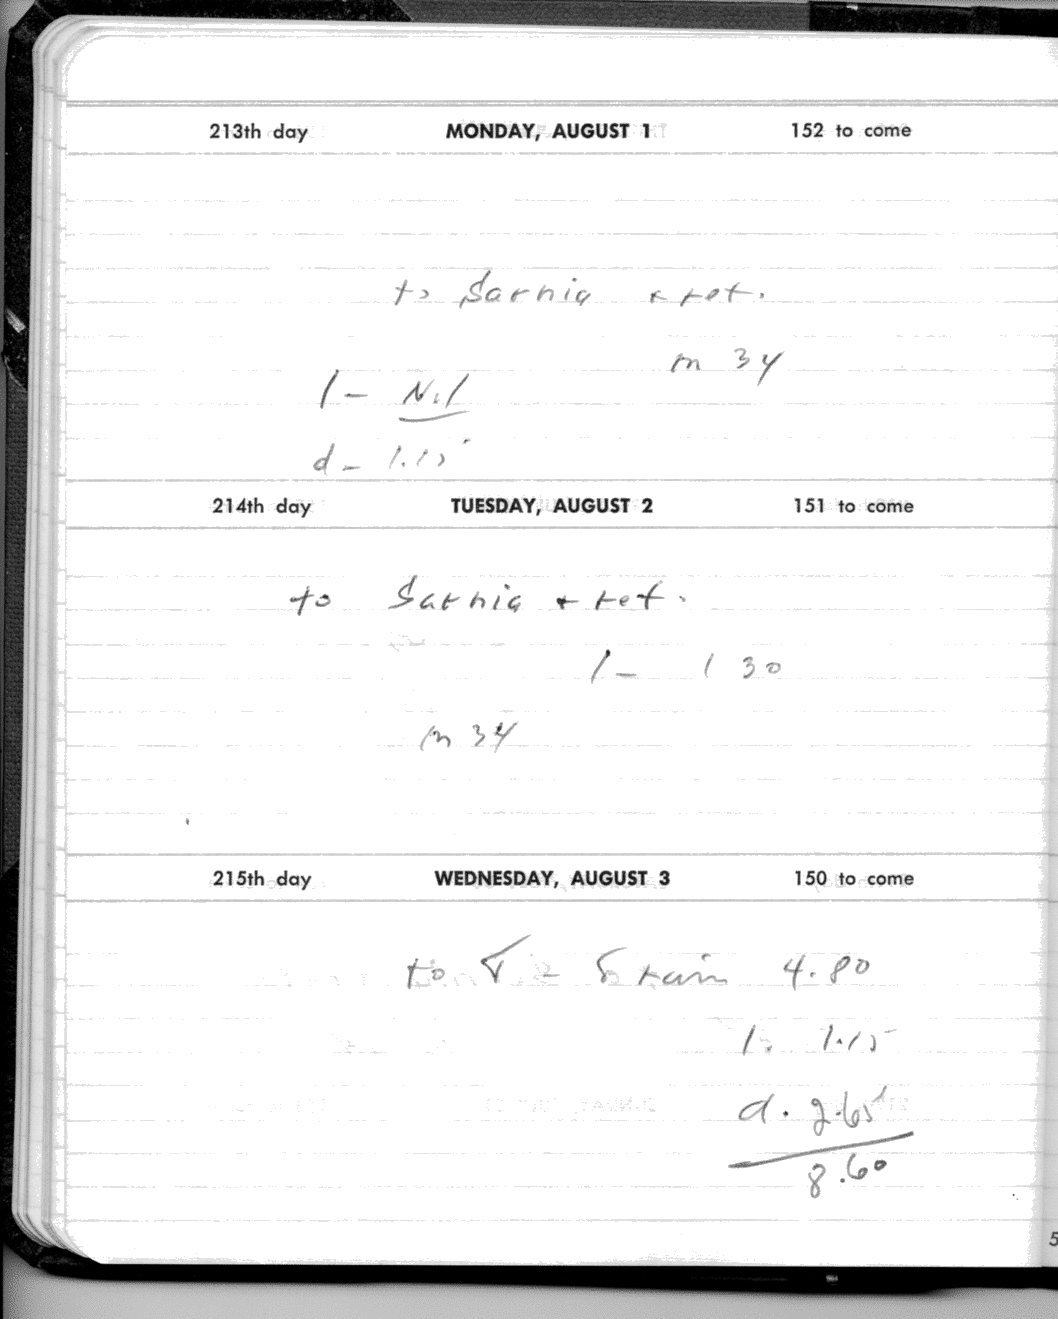 213th day MONDAY, AUGUST 1 152 to come
to Sarnia & ret.
m 34
l - Nil
d - 1.15
214th day TUESDAY, AUGUST 2 151 to come
to Sarnia & ret.
l - 1 30
m 34
215th day WEDNESDAY, AUGUST 3 150 to come
to train 4.80
l. 1.15
d. 2.65
8.60
5